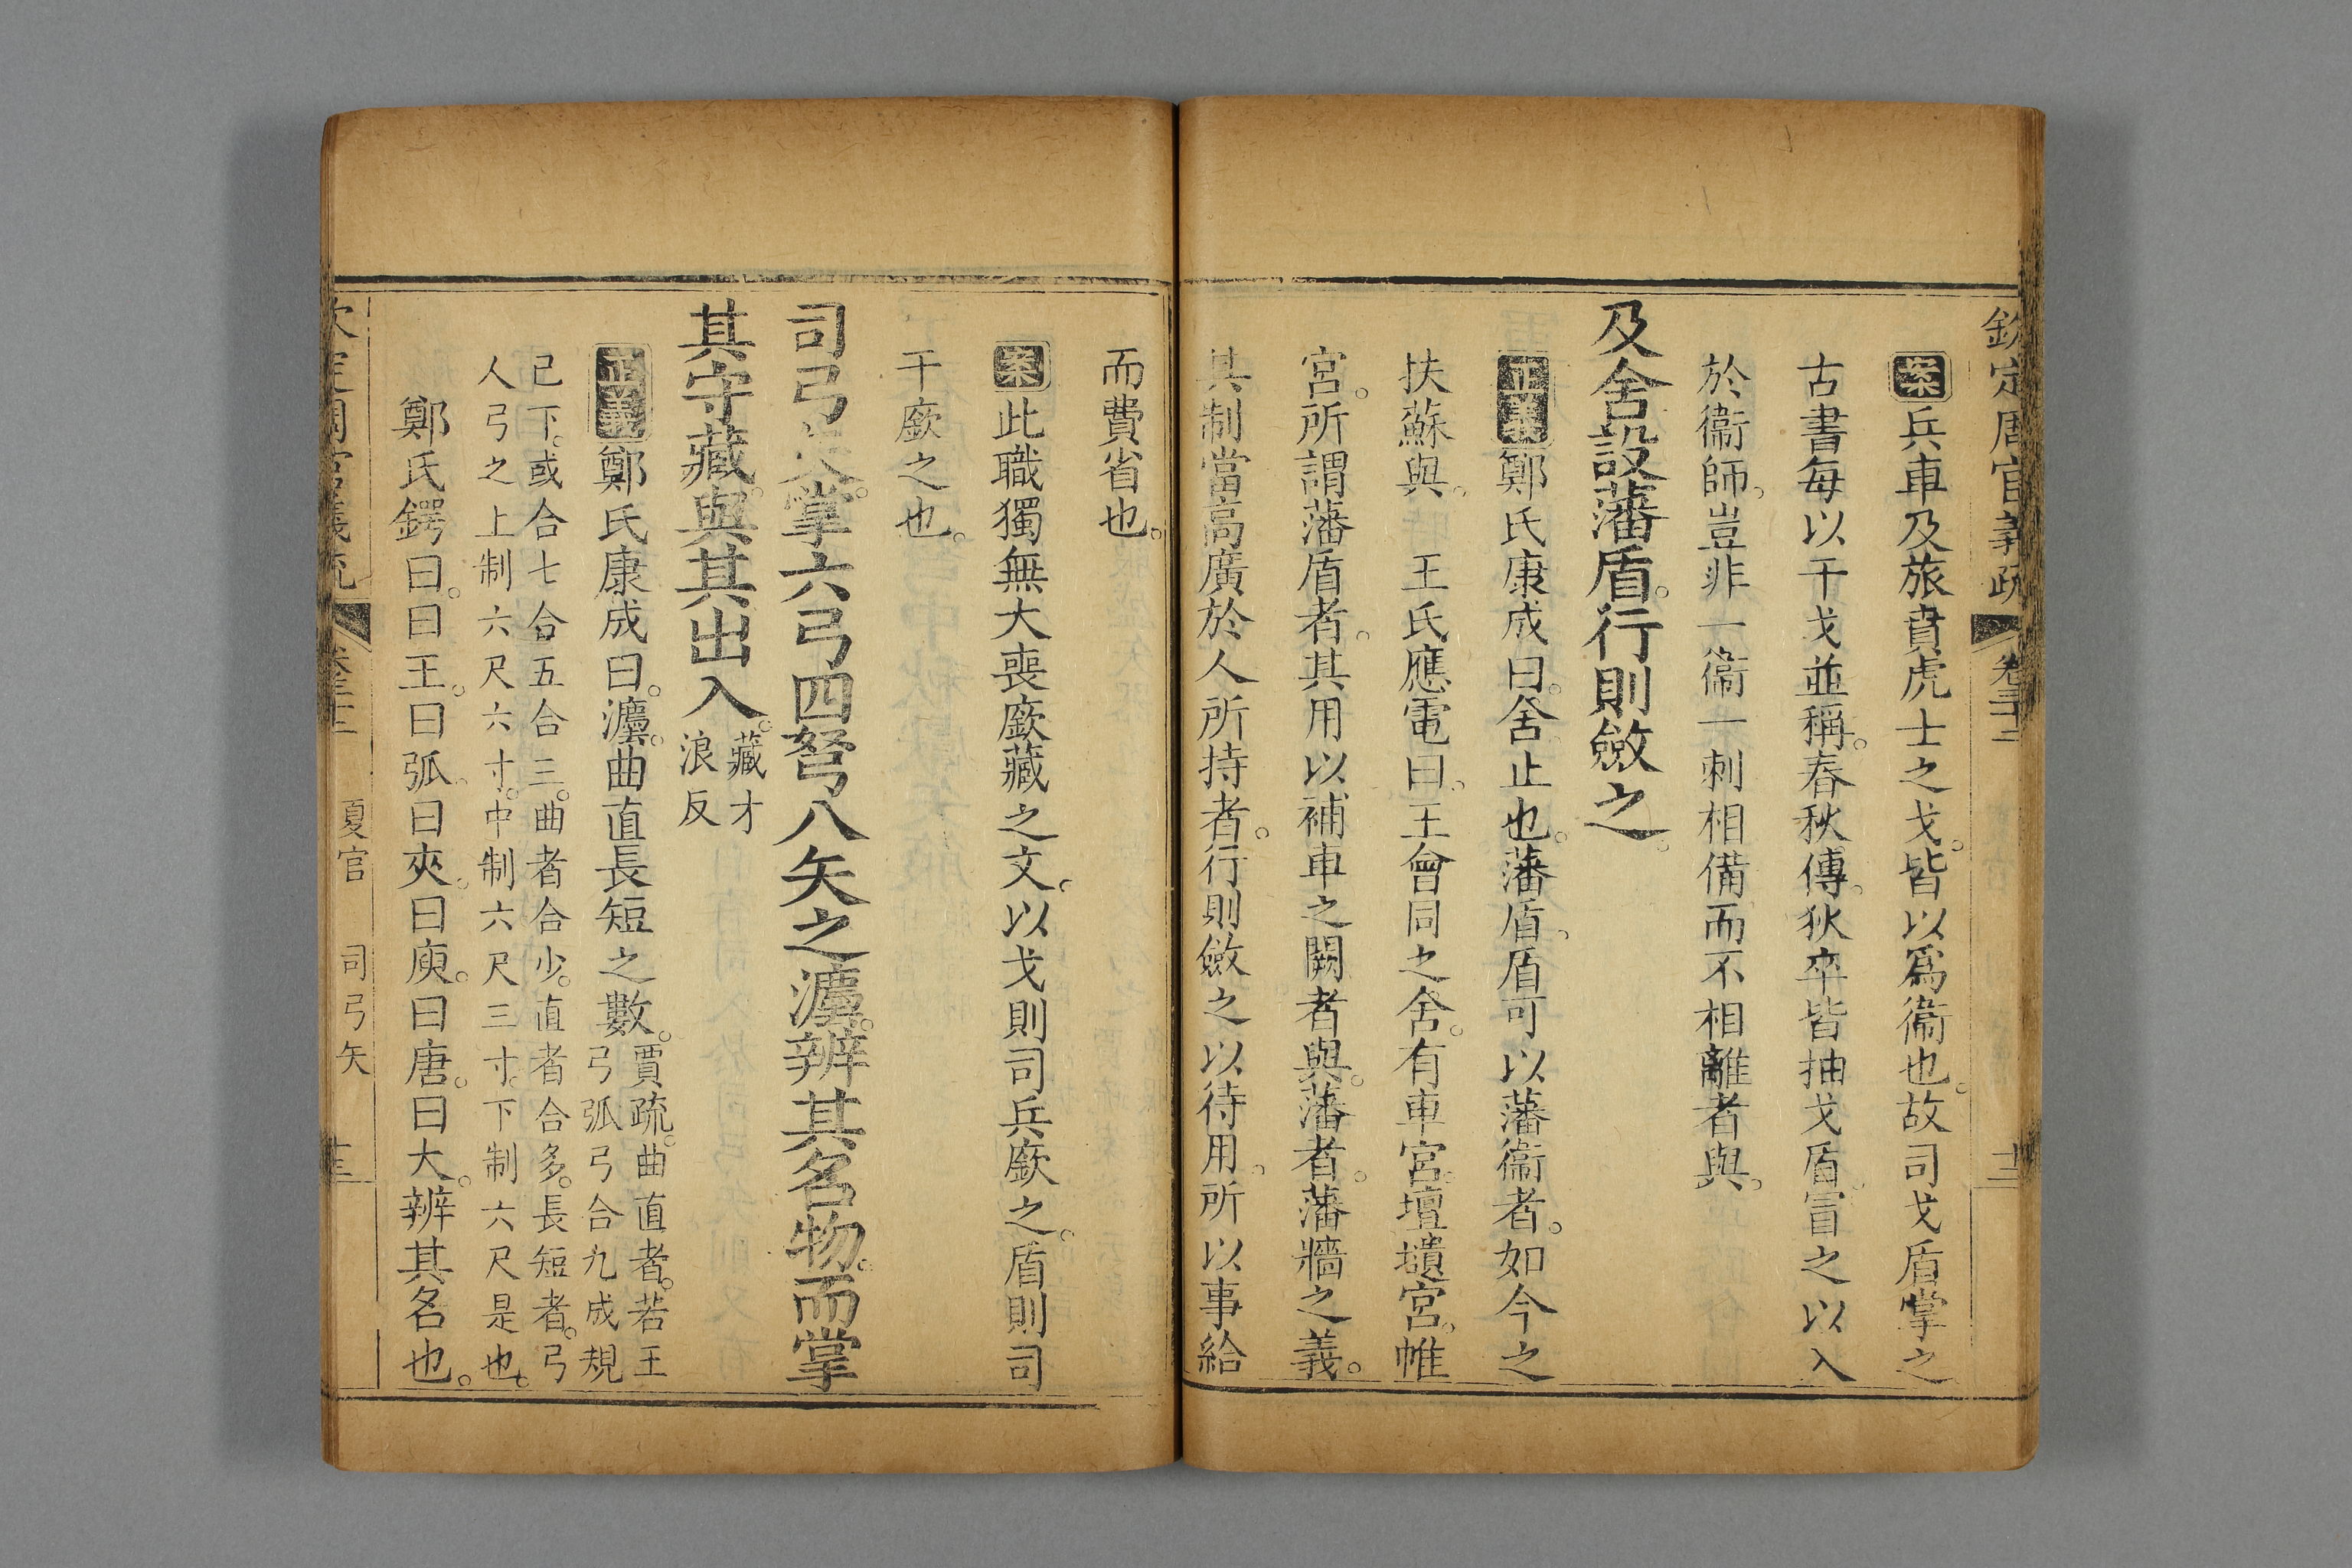 欽定周官義疏 卷三十二 十二
案兵車及旅賁虎士之戈。皆以爲衞也。故司戈盾掌之
古書每以干戈並稱。春秋傳。狄卒皆抽戈盾冒之以入
於衞師。豈非一衞一刺相備而不相離者與。
及舍設藩盾。行則斂之。
正義鄭氏康成曰。舍止也。藩盾。盾可以藩衞者。如今之
扶蘇與。 王氏應電曰。王會同之舍。有車宮。壇壝宮。帷
宮。所謂藩盾者。其用以補車之闕者與。藩者。藩牆之義。
其制當高廣於人所持者。行則斂之以待用。所以事給
而費省也。
案此職獨無大喪廞藏之文。以戈則司兵廞之。盾則司
干廞之也。
司弓矢。掌六弓四弩八矢之灋。辨其名物。而掌
其守藏。與其出入。藏才
浪反
正義鄭氏康成曰。灋。曲直長短之數。賈疏。曲直者。若王
弓弧弓合九成規
已下。或合七合五合三。曲者合少。直者合多。長短者。弓
人弓之上制六尺六寸。中制六尺三寸。下制六尺是也。
鄭氏鍔曰。曰王。曰弧。曰夾。曰庾。曰唐。曰大。辨其名也。
欽定周官義疏 卷三十二 夏官 司弓矢 十三